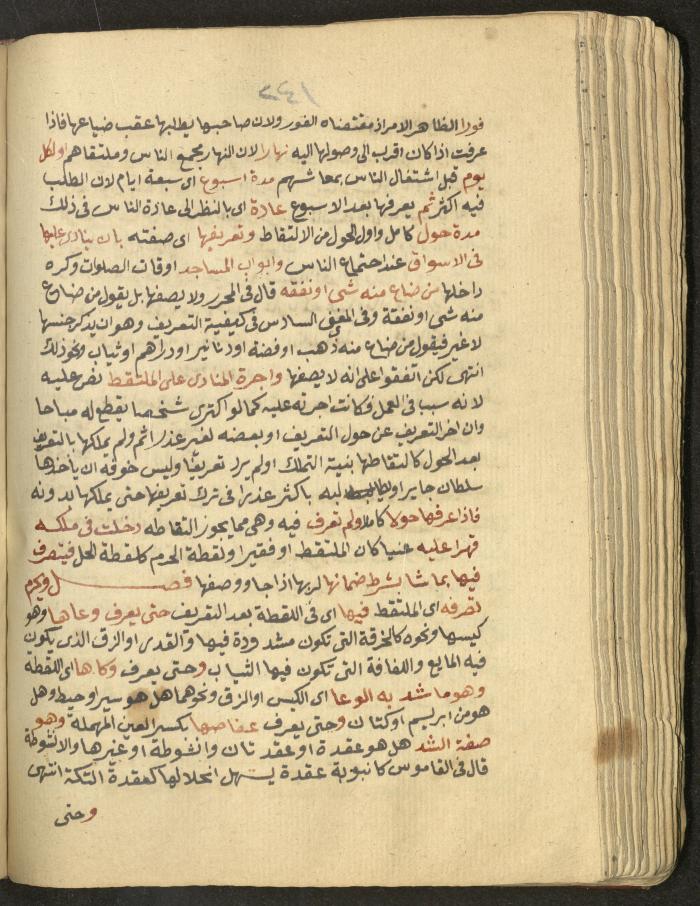 ١٤٢
فورا لظاهر الامر اذ مقتضاه الفور ولان صاحبها يطلبها عقب ضياعها فاذا
عرفت اذا كان اقرب الى وصولها اليه نهارا لان النهار مجمع الناس وملتقاهم اول كل
يوم قبل اشتغال الناس بمعاشهم مدة اسبوع اى سبعة ايام لان الطلب
فيه اكثر ثم يعرفها بعد الاسبوع عادة اى بالنظر الى عادة الناس فى ذلك
مدة حول كامل واول الحول من الالتقاط وتعريفها اى صفته بان ينادى عليها
فى الاسواق عند اجتماع الناس وابواب المساجد اوقات الصلوات وكره
داخلها من ضاع منه شى او نفقه قال فى المحرر ولا يصفها بل يقول من ضاع
منه شى او نفقة وفى المغنى السادس فى كيفية التعريف وهو ان يذكر جنسها
لا غير فيقول من ضاع منه ذهب او فضة او دنانير او دراهم او ثياب ونحو ذلك
انتهى لكن اتفقوا على انه لا يصفها واجرة المنادى على الملتقط نص عليه
لانه سبب فى العمل فكانت اجرته عليه كما لو اكترى شخصا يقطع له مباحا
وان اخر التعريف عن حول التعريف او بعضه لغير عذر اثم ولم يملكها بالتعريف
بعد الحول كالتقاطها بنية التملك او لم يرد تعريفا وليس خوفه ان ياخذها
سلطان جاير او يطالبه باكثر عذرا فى ترك تعريفها حتى يملكها بدونه
فاذا عرفها حولا كاملا ولم تعرف فيه وهى مما يجوز التقاطه دخلت فى ملكه
قهرا عليه غنيا كان الملتقط او فقيرا ولقطة الحرم كلقطة الحل فيتصرف
فيها بما شا بشرط ضمانها لربها اذا جا ووصفها فصــل ويحرم
تصرفه اى الملتقط فيها اى فى اللقطة بعد التعريف حتى يعرف وعاها وهو
كيسها ونحوه كالخرقة التى تكون مشدودة فيها والقدر او الزق الذى يكون
فيه المايع واللفافة التى تكون فيها الثياب وحتى يعرف وكاها اى اللقطه
وهو ما شد به الوعا اى الكيس او الزق ونحوهما هل هو سير او خيط وهل
هو من ابريسم او كتان وحتى يعرف عفاصها بكسر العين المهملة وهو
صفة الشد هل هو عقدة او عقدتان وانشوطة او غيرها والانشوطة
قال فى القاموس كانبوبة عقدة يسهل انحلالها كعقدة التكة انتهى
وحتى